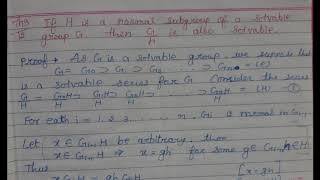 Th:3 If H is a normal subgroup of a solvable
group G. then G/H is also solvable.
Proof → As G is a solvable group, we suppose this
G = G₀ ⊃ G₁ ⊃ G₂ ⊃ = (e)
is a solvable series for G. Consider the series
G/H = G₀H/H ⊃ G₁H/H ⊃ G₂H/H ⊃ = (H) ①
For each i = 1, 2, 3 n. Gᵢ is normal in Gᵢ₋₁
Let x ∈ Gᵢ₋₁H be arbitrary. then
x ∈ Gᵢ₋₁H ⇒ x = gh for some g ∈ Gᵢ₋₁, h ∈ H
Thus [x = gh]